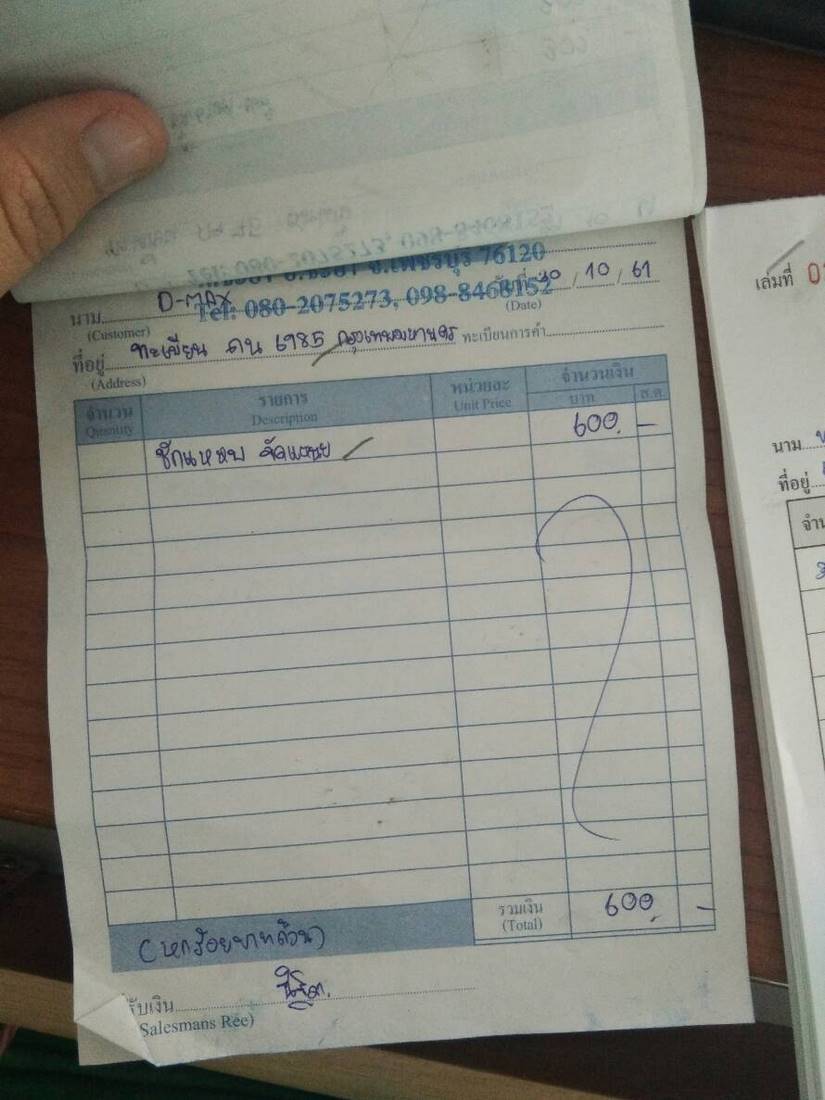 อ.ชะอำ จ.เพชรบุรี 76120
Tel: 080-2075273, 098-8468152
นาม D-MAX วันที่ 30 / 10 / 61
(Customer) (Date)
ที่อยู่ ทะเบียน ฅน 6985 กรุงเทพมหานคร ทะเบียนการค้า
(Address)
จำนวน รายการ หน่วยละ จำนวนเงิน
Quantity Description Unit Price บาท ส.ต.
ชักแหนบ 600. –
รวมเงิน 600. –
(Total)
(หกร้อยบาทถ้วน)
รับเงิน
Salesmans Ree)
เล่มที่ 0
นาม
ที่อยู่
จำน